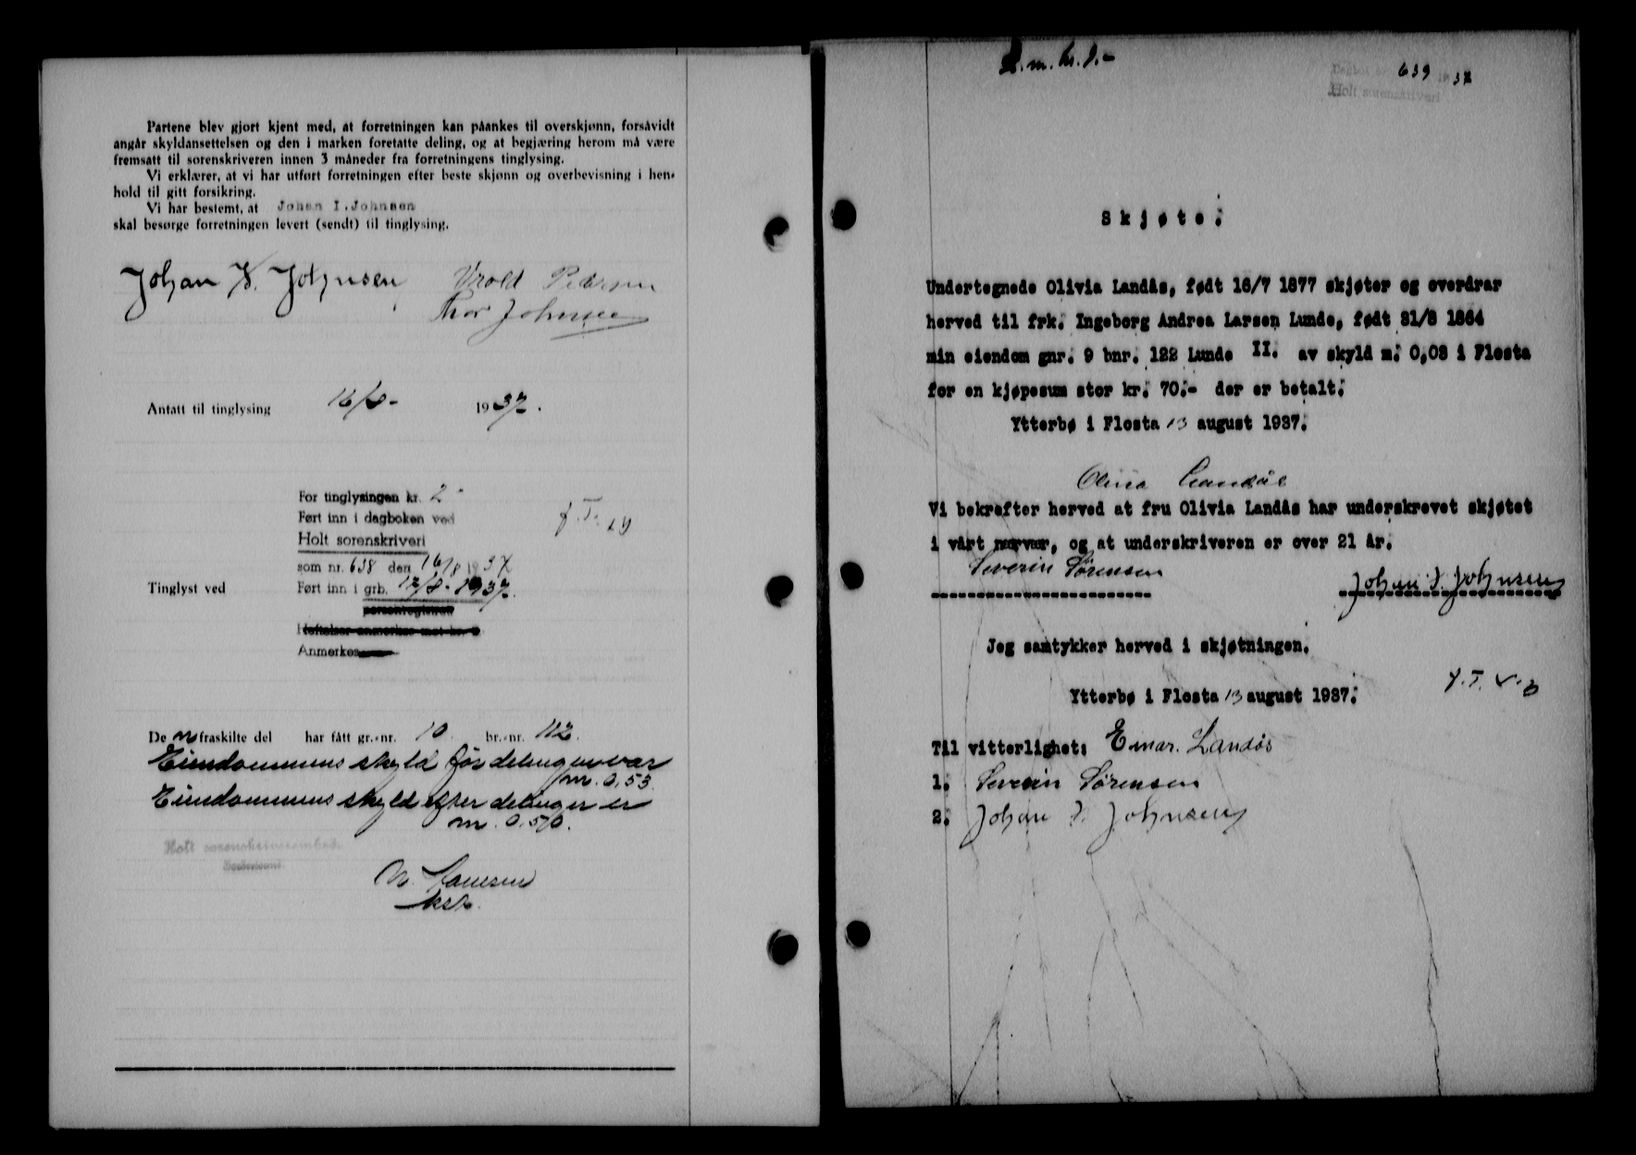 Partene blev gjort kjent med, at forretningen kan påankes til overskjønn, forsåvidt
angår skyldansettelsen og den i marken foretatte deling, og at begjæring herom må være
fremsatt til sorenskriveren innen 3 måneder fra forretningens tinglysing.
Vi erklærer, at vi har utført forretningen efter beste skjønn og overbevisning i hen-
hold til gitt forsikring.
Vi har bestemt, at Johan I. Johnsen
skal besørge forretningen levert (sendt) til tinglysing.
Johan Johnsen
Pedersen
Thor Johnsen
Antatt til tinglysing 16/8- 1937.
For tinglysingen kr. 2-
Ført inn i dagboken ved
Holt sorenskriveri
som nr. 638 den 16/8 1937
Tinglyst ved Ført inn i grb. 17/8- 1937.
personregistret
Heftelser anmerket mot kr. 2
Anmerket
De n fraskilte del har fått gr.-nr. 10 br.-nr. 112.
Eiendommens skyld før delingen var
m. 0,53
Eiendommens skyld efter delingen er
m. 0.50.
Holt sorenskriverembede
Hansen
2.m.kr. 1.-
639 1937
Holt sorenskriveri
Skjøte.
Undertegnede Olivia Landås, født 16/7 1877 skjøter og overdrar
herved til frk. Ingeborg Andrea Larsen Lunde, født 31/8 1864
min eiendom gnr. 9 bnr. 122 Lunde II. av skyld m. 0,03 i Flosta
for en kjøpesum stor kr. 70.- der er betalt.
Ytterbø i Flosta 13 august 1937.
Olivia Landås
Vi bekrefter herved at fru Olivia Landås har underskrevet skjøtet
i vårt nærvær, og at underskriveren er over 21 år.
Severin Sørensen
Johan I. Johnsen
Jeg samtykker herved i skjøtningen.
Ytterbø i Flosta 13 august 1937.
Til vitterlighet: Einar Landås
1. Severin Sørensen
2. Johan I. Johnsen